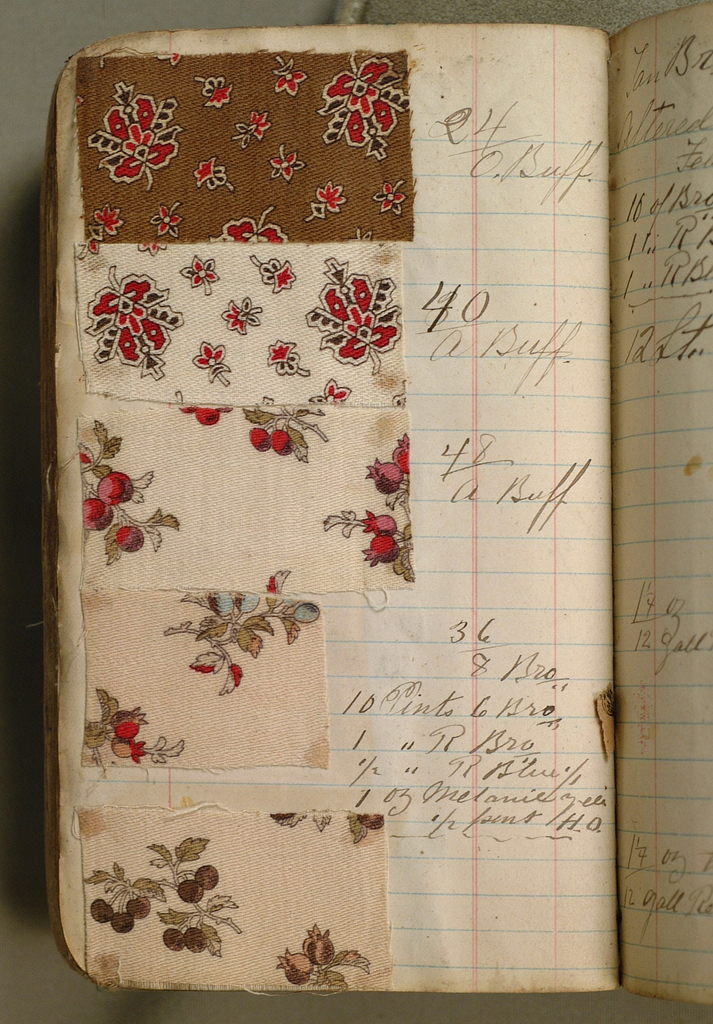 24
O. Buff.
40
A Buff.
48
A Buff
36
8 Bro
10 Pints 6 Bro
1 " R Bro
1/2 " R Blue 1/1
1 oz
1/2 pint H.O.
Jan Br
Altered
Fe
10 of Bro
1 " R B
1 " R Bl
12
1/4 oz
12 Gall
1/4 oz
12 Gall Ro